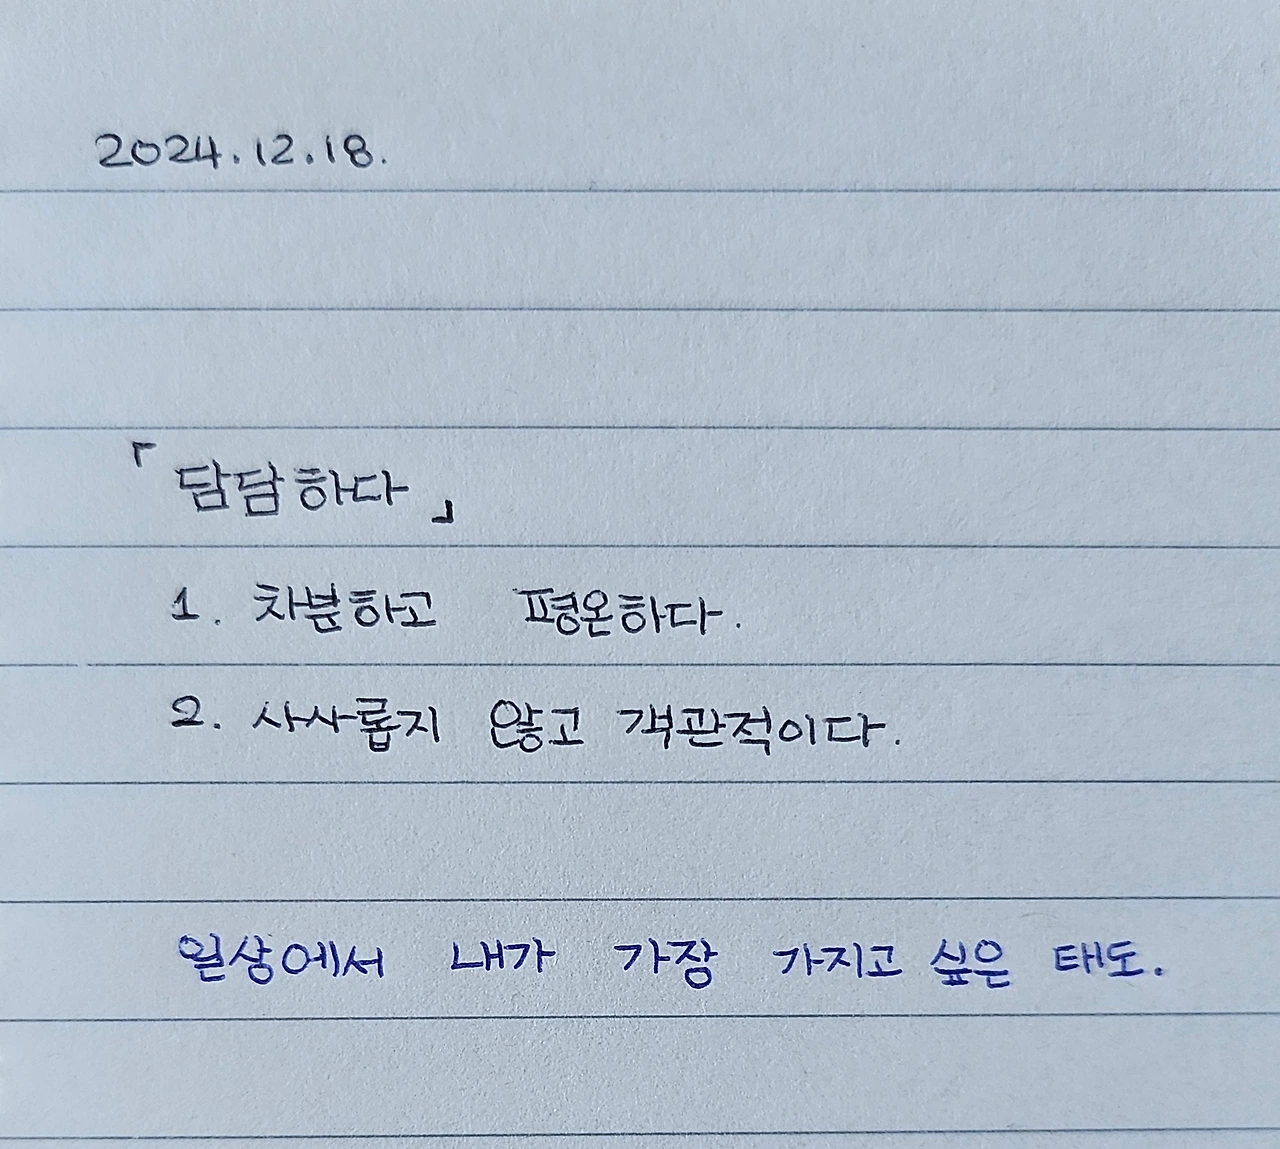 2024.12.18.
「담담하다」
1. 차분하고 평온하다.
2. 사사롭지 않고 객관적이다.
일상에서 내가 가장 가지고 싶은 태도.